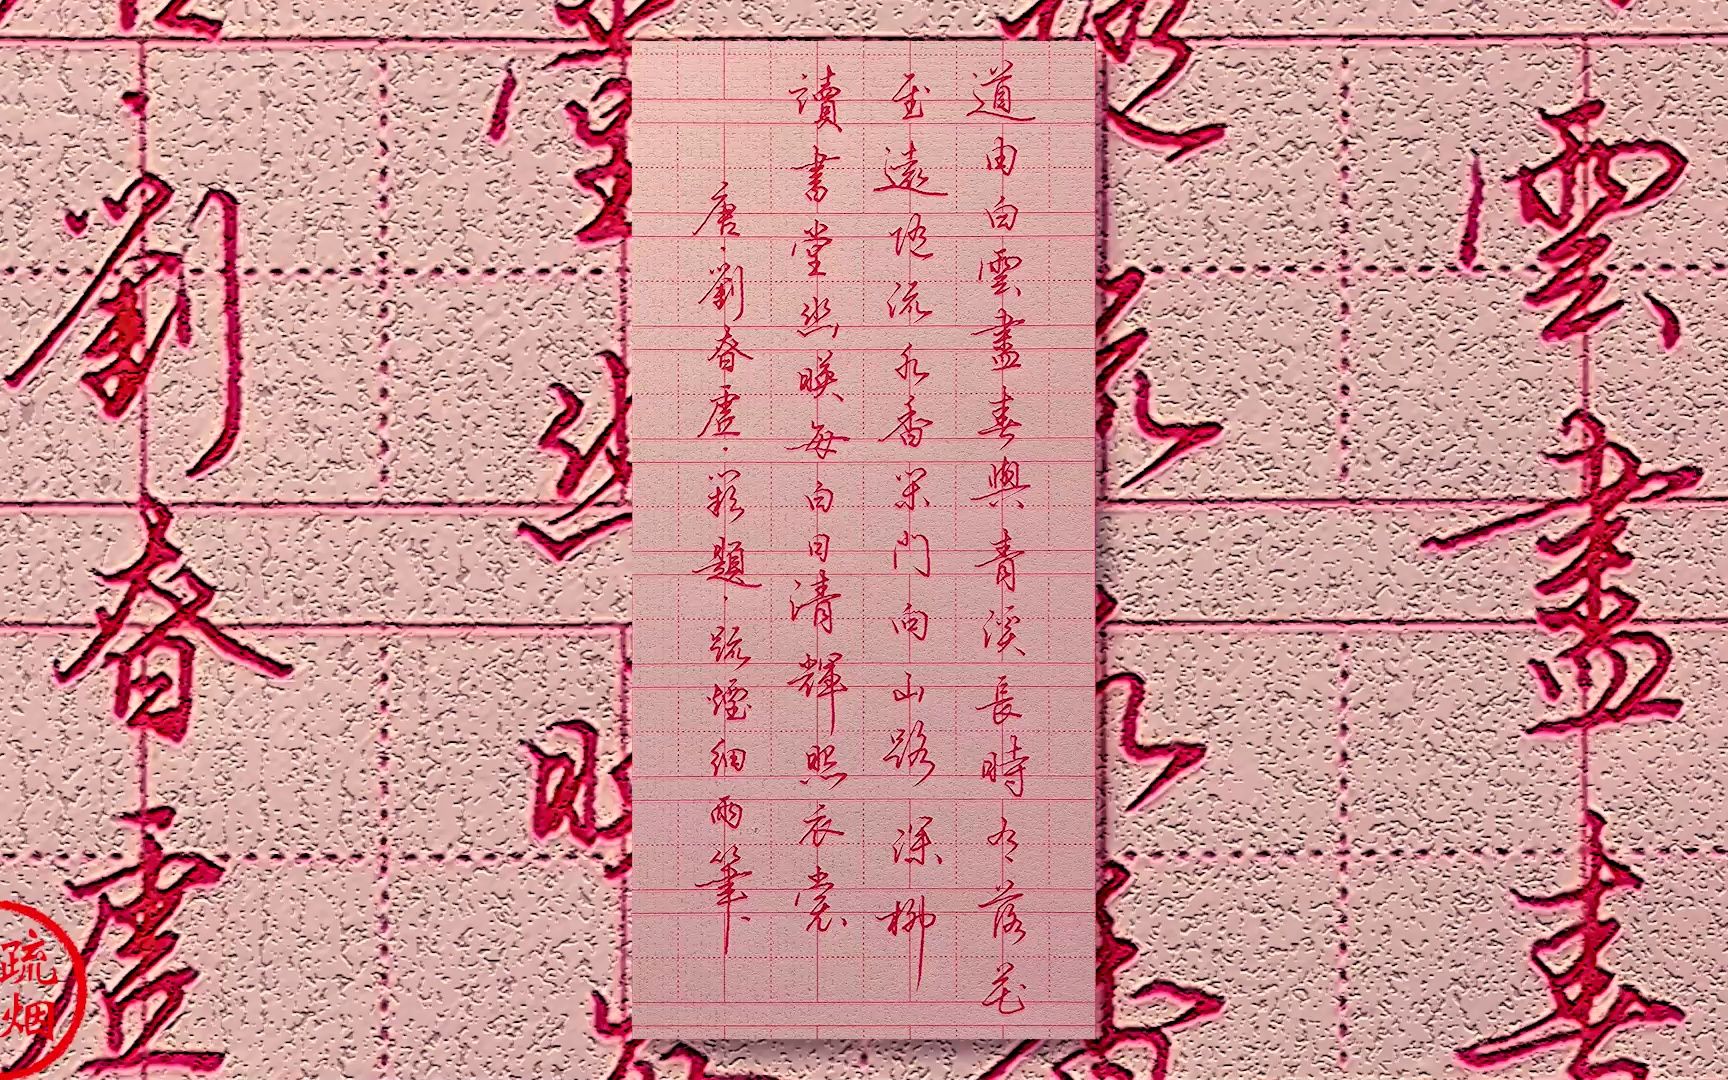 道由白雲盡春與青溪長時有落花
至遠随流水香閑門向山路深柳
讀書堂幽映每白日清輝照衣裳
唐·劉昚虛·闕題·疏煙細雨筆
雲盡春
劉昚虛
疏烟